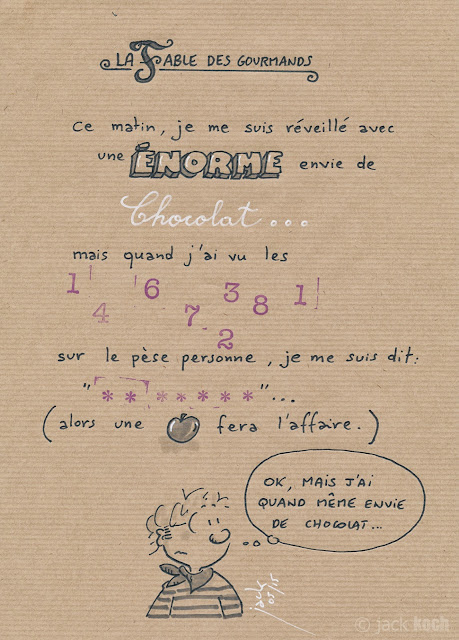 LA FABLE DES GOURMANDS
Ce matin, je me suis réveillé avec
une ÉNORME envie de
Chocolat...
mais quand j'ai vu les
1 4 6 7 3 2 8 1
sur le pèse personne, je me suis dit:
"* * * * * * *"...
(alors une fera l'affaire.)
OK, MAIS J'AI
QUAND MÊME ENVIE
DE CHOCOLAT...
jack
05/15
© jack koch